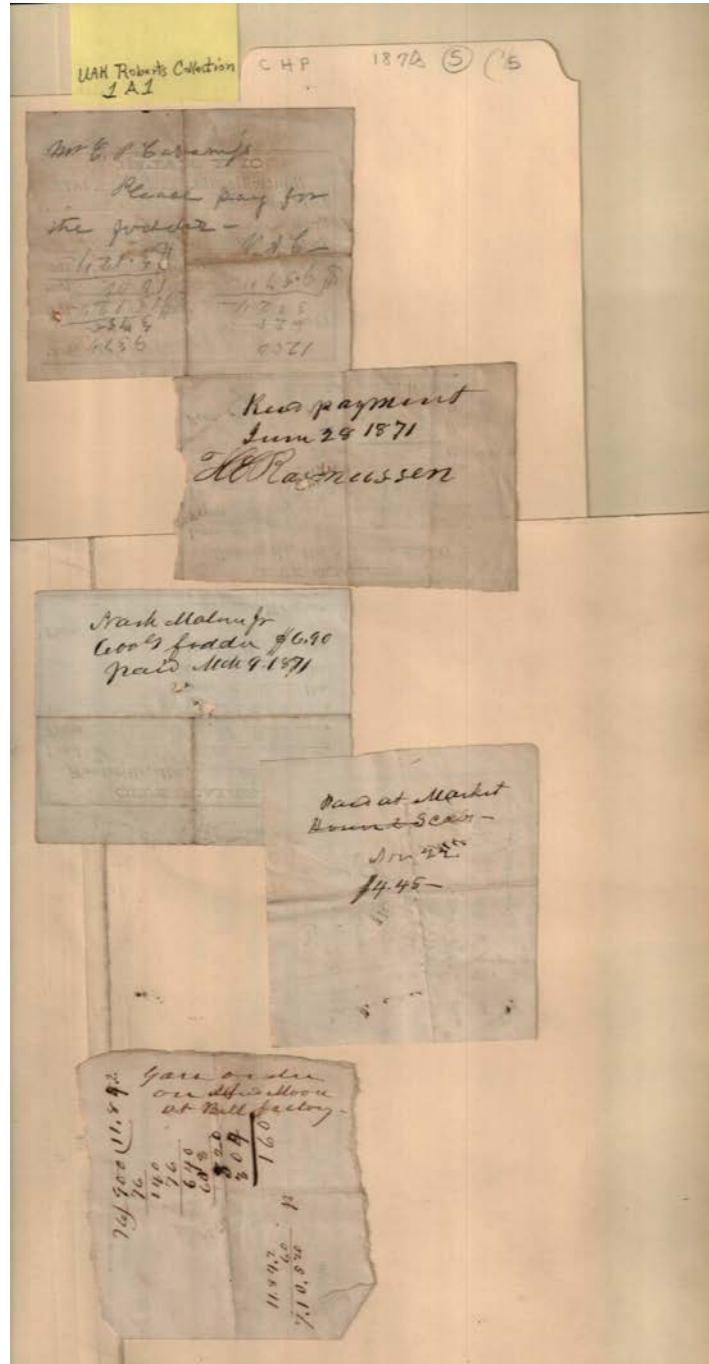 UAH Roberts Collection
1 A 1
C H P 187 5 5
Mr E. P. Cabaniss
Please pay for
the fodder —
1200
Recd payment
June 28 1871
Rasmussen
Nash Malone Jr
600 fodder $6.90
paid Mch 9 1871
Paid at Market
House Scales —
Nov 22nd
$4.45 —
Gave order
on Moon
at Bell factory.
76) 900 ( 11.842
76
140
76
640
608
320
304
160
11.842
60
7.10.520